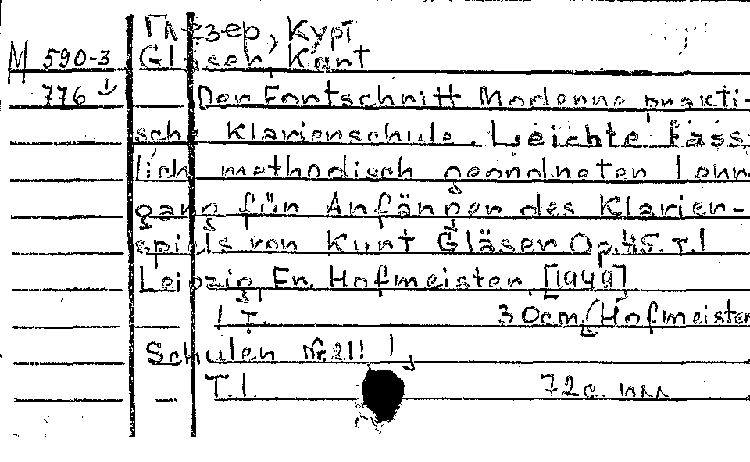 Глезер, Курт
М 590-3 Gläser, Kurt
776 Der Fortschritt Moderne prakti-
sche Klavierschule. Leichte fass
lich methodisch geordneten Lehr
gang für Anfänger des Klavier-
spiels von Kurt Gläser Op.45. T.1
Leipzig Fr. Hofmeister [1949]
1 T. 30cm/Hofmeister
Schulen №211
T.1 72c. илл